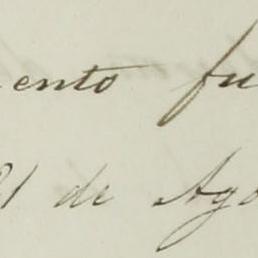 ento fu
21 de Ago